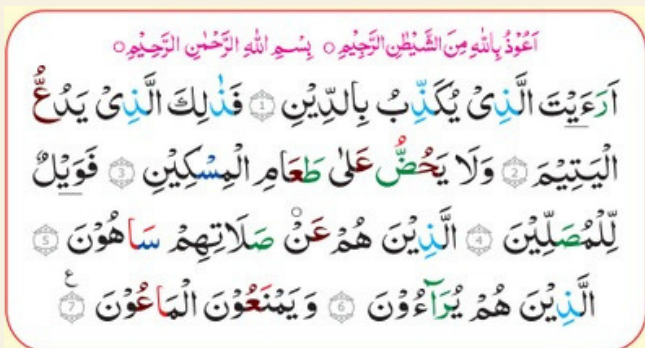 اَعُوْذُ بِاللّٰهِ مِنَ الشَّيْطٰنِ الرَّجِيْمِ ○ بِسْمِ اللّٰهِ الرَّحْمٰنِ الرَّحِيْمِ ○
اَرَءَيْتَ الَّذِىْ يُكَذِّبُ بِالدِّيْنِ ۝1 فَذٰلِكَ الَّذِىْ يَدُعُّ
الْيَتِيْمَ ۝2 وَلَا يَحُضُّ عَلٰى طَعَامِ الْمِسْكِيْنِ ۝3 فَوَيْلٌ
لِّلْمُصَلِّيْنَ ۝4 الَّذِيْنَ هُمْ عَنْ صَلَاتِهِمْ سَاهُوْنَ ۝5
الَّذِيْنَ هُمْ يُرَآءُوْنَ ۝6 وَيَمْنَعُوْنَ الْمَاعُوْنَ ۝7 ع